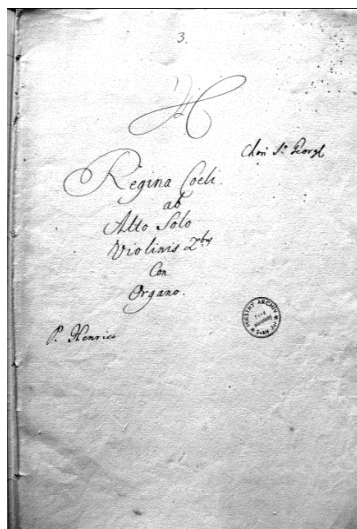 3.
Chori S. Georgl
Regina Coeli.
ab
Alto Solo
Violinis 2bus
Con
Organo.
P. Henrico